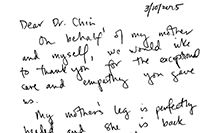 3/10/2015
Dear Dr. Chin
On behalf of my mother
and myself, we would like
to thank you for the exceptional
care and empathy you gave
us.
My mother's leg is perfectly
healed and she is back